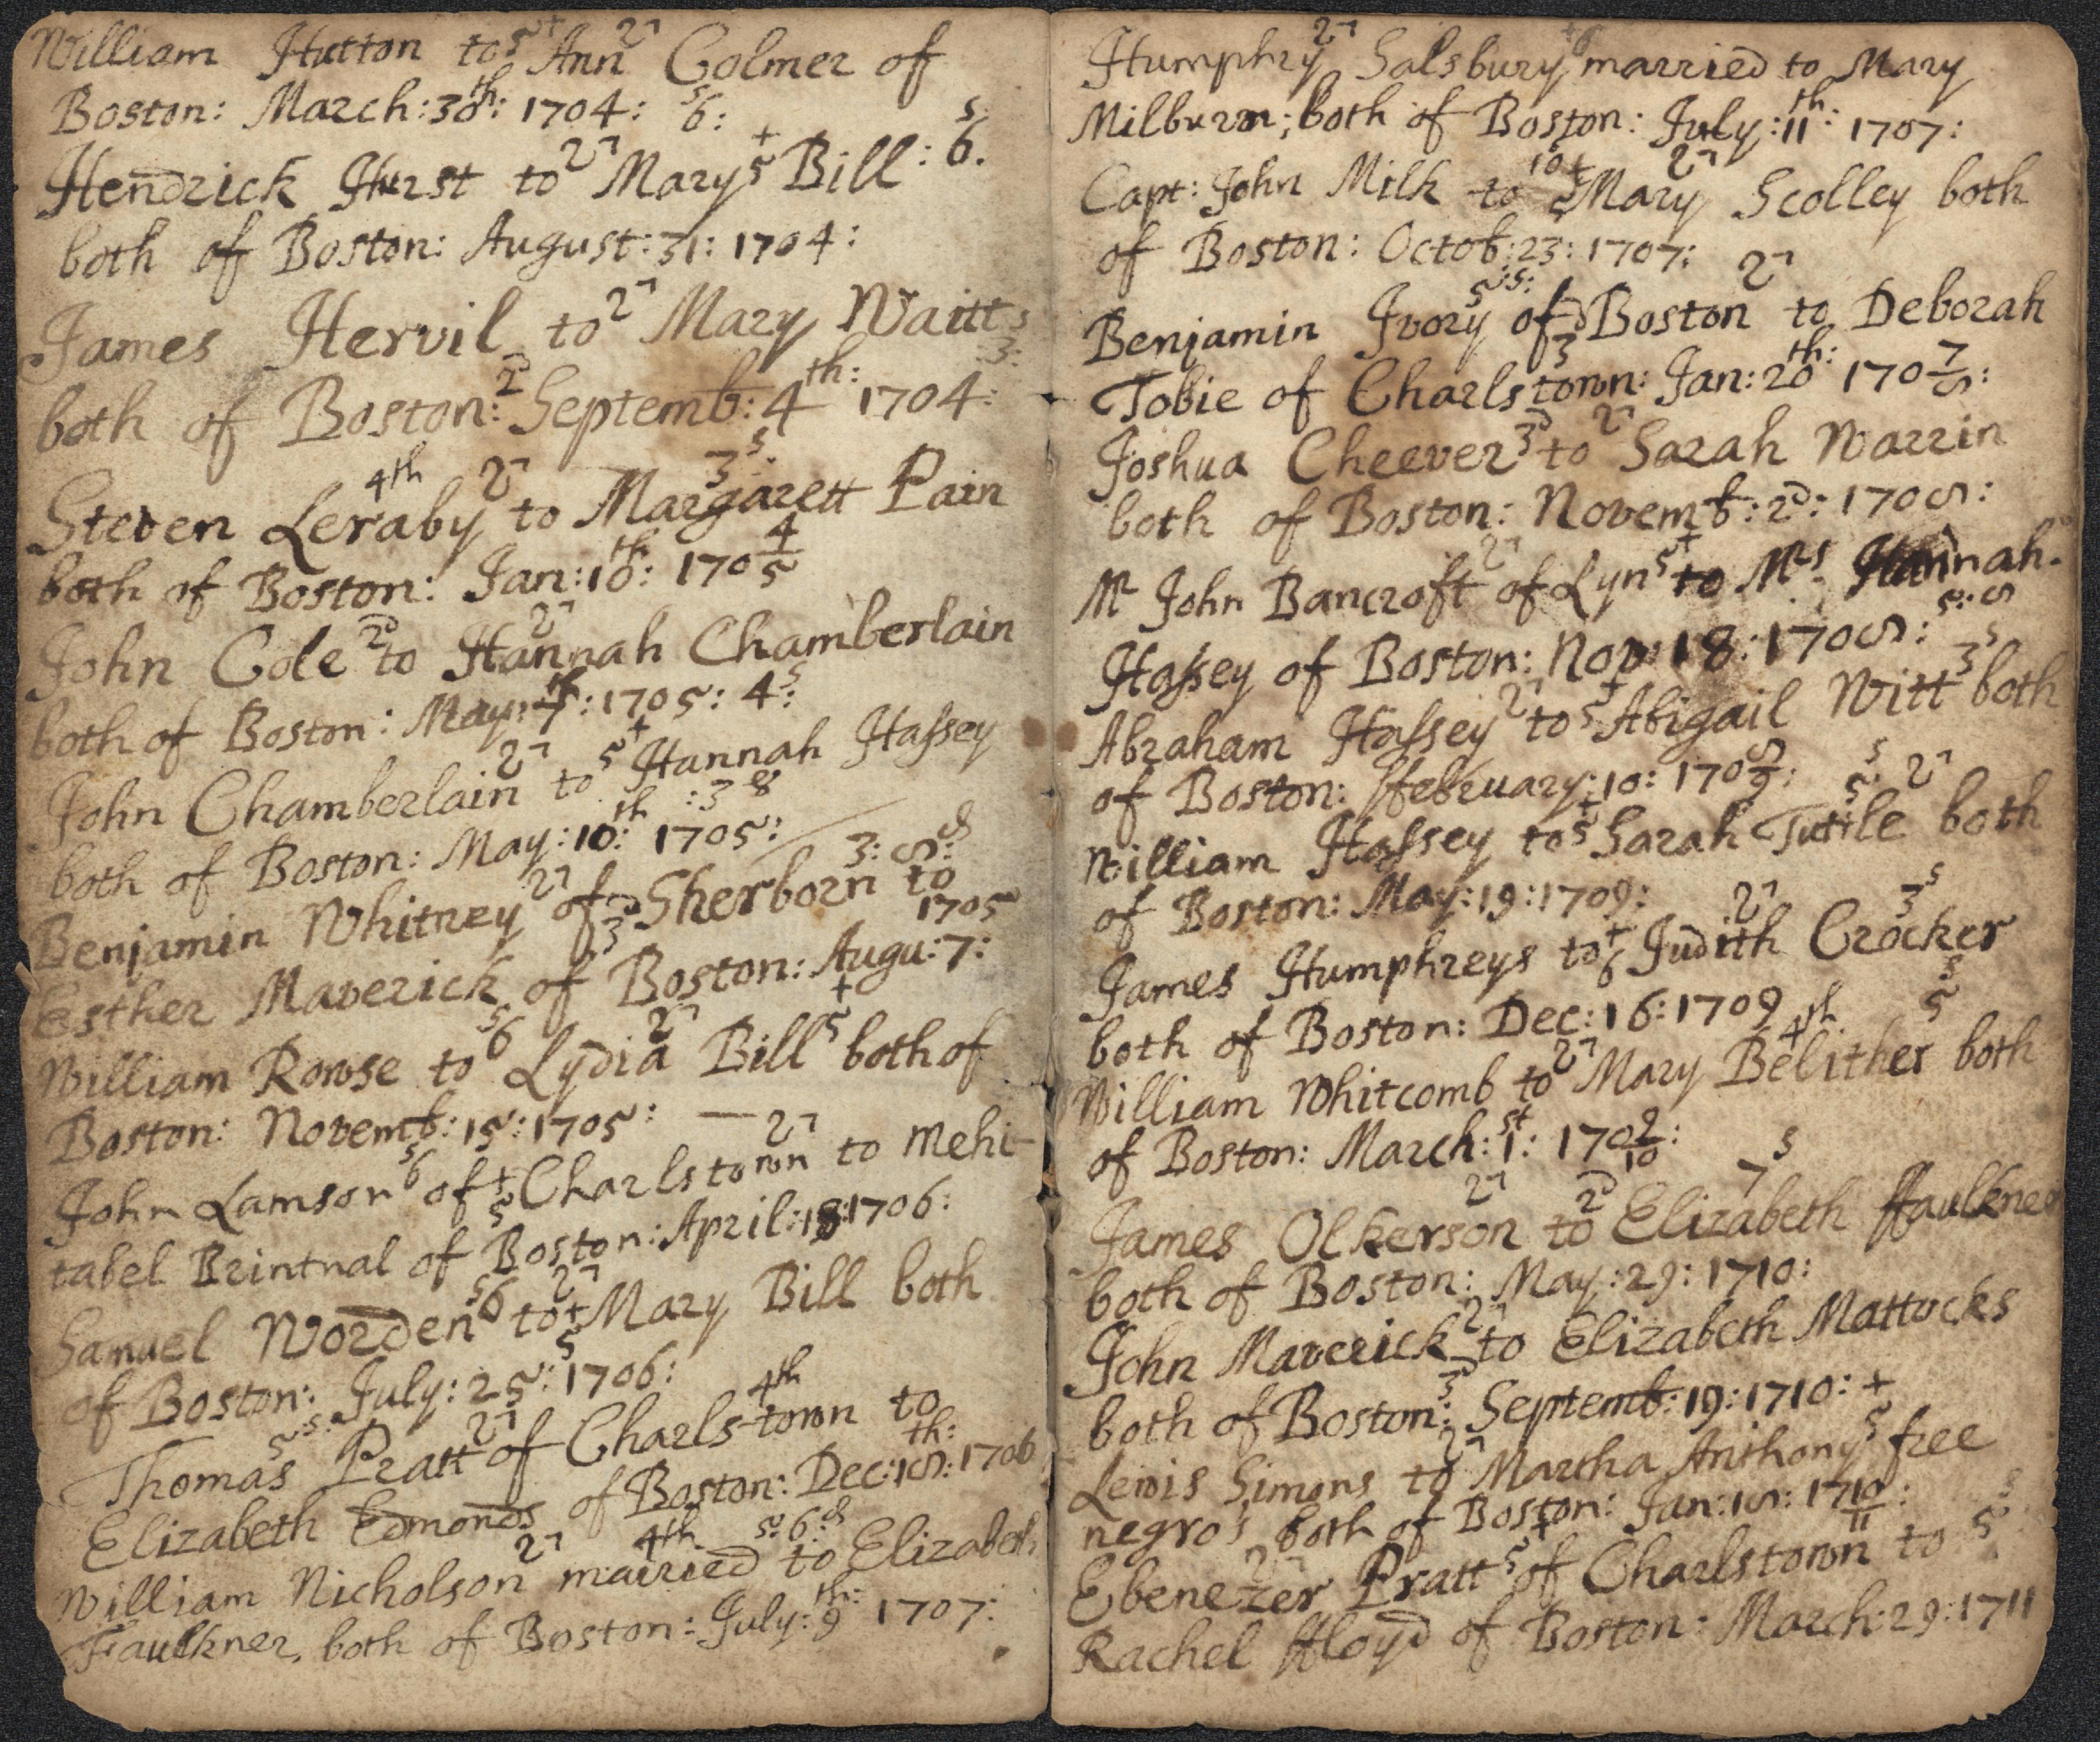 William Hutton to 5+ Ann 27 Colmer of
Boston: March: 30th: 1704: 6s:
Hendrick Hurst to 27 Mary 5+ Bill: 6s.
both of Boston: August: 31: 1704:
James Hervil to 27 Mary Waitt s
both of Boston: 2d Septemb: 4th: 1704: :3:
Steven Leraby 4th 27 to Margarett 3s Pain
both of Boston: Jan: 10th: 170 4/5
John Cole 2d to Hannah 27 Chamberlain
both of Boston: May: 7th: 1705: 4s:
John Chamberlain 27 to 5+ Hannah Hassey
both of Boston: May: 10th: 1705: :3 8
Benjamin Whitney 27 of 3d Sherborn to 3: 8:
Esther Maverick of Boston: Augu: 7: 1705
William Rowse to 6s Lydia 27 Bill 5+ both of
Boston: Novemb: 15: 1705:
John Lamson 6s of 5+ Charlstown 27 to Mehi-
tabel Brintnal of Boston: April: 18: 1706:
Samuel Worden 6s to 27 5+ Mary Bill both
of Boston: July: 25: 1706:
Thomas 5s: Pratt 27 of Charls-town 4th to
Elizabeth Edmonds of Boston: Dec: 18th: 1706
William Nicholson 27 married 4th to Elizabeth
Faulkner, both of Boston: July: 9th: 1707:
Humphry 27 Salsbury married to Mary
Milburn; both of Boston: July: 11th: 1707:
Capt: John Milk to Mary 27 Scolley both
of Boston: Octob: 23: 1707:
Benjamin Ivory 5s: of 3d Boston 27 to Deborah
Tobie of Charlstown: Jan: 20th: 170 7/8:
Joshua Cheever 3d to 27 Sarah Warrin
both of Boston: Novemb: 2d: 1708:
Mr John Bancroft 27 of Lyn 5+ to Mrs Hannah
Hassey of Boston: Nov: 18: 1708:
Abraham Hassey 27 to 5+ Abigail Witt 3s both
of Boston: ffebruary: 10: 170 8/9:
William Hassey to 5+ Sarah Tuttle 5s 27 both
of Boston: May: 19: 1709:
James Humphreys to 6+ Judith 27 Crocker 3s
both of Boston: Dec: 16: 1709
William Whitcomb to 27 Mary Belither 4th 5s both
of Boston: March: 1st: 170 9/10:
James Olkerson 27 to 2d Elizabeth 7s ffaulkner
both of Boston: May: 29: 1710:
John Maverick 27 to Elizabeth Mattocks
both of Boston: 3d Septemb: 19: 1710:
Lewis Simons to 27 Martha Anthony 5+ free
negro's both of Boston: Jan: 18: 17 10/11:
Ebenezer 27 Pratt 5+ of Charlstown to 5s
Rachel ffloyd of Boston: March: 29: 1711